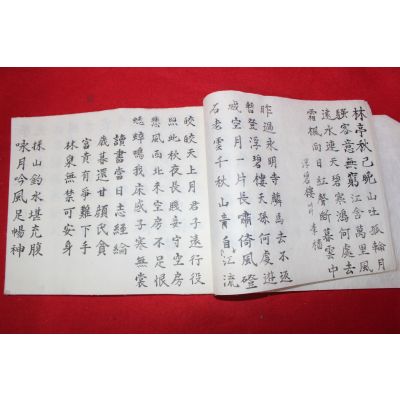 林亭秋已晚山吐孤輪月
騷客意無窮江含萬里風
遠水連天碧寒鴻何處去
霜楓向日紅聲斷暮雲中
浮碧樓 李穡
昨過永明寺麟馬去不返
暫登浮碧樓天孫何處遊
城空月一片長嘯倚風磴
石老雲千秋山青自江流
皎皎天上月君子遠行役
照此秋夜長賤妾守空房
悲風西北來空房不足恨
蟋蟀鳴我床感子寒無裳
讀書當日志經綸
歲暮還甘顏氏貧
富貴有爭難下手
林泉無禁可安身
採山釣水堪充腹
咏月吟風足暢神